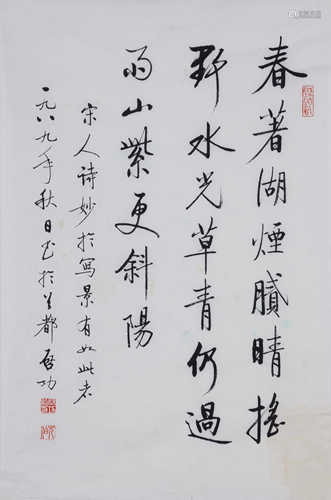 春著湖煙膩晴搖
野水光草青仍過
雨山紫更斜陽
宋人诗妙於写景有如此者
一九八九年秋日书於首都启功